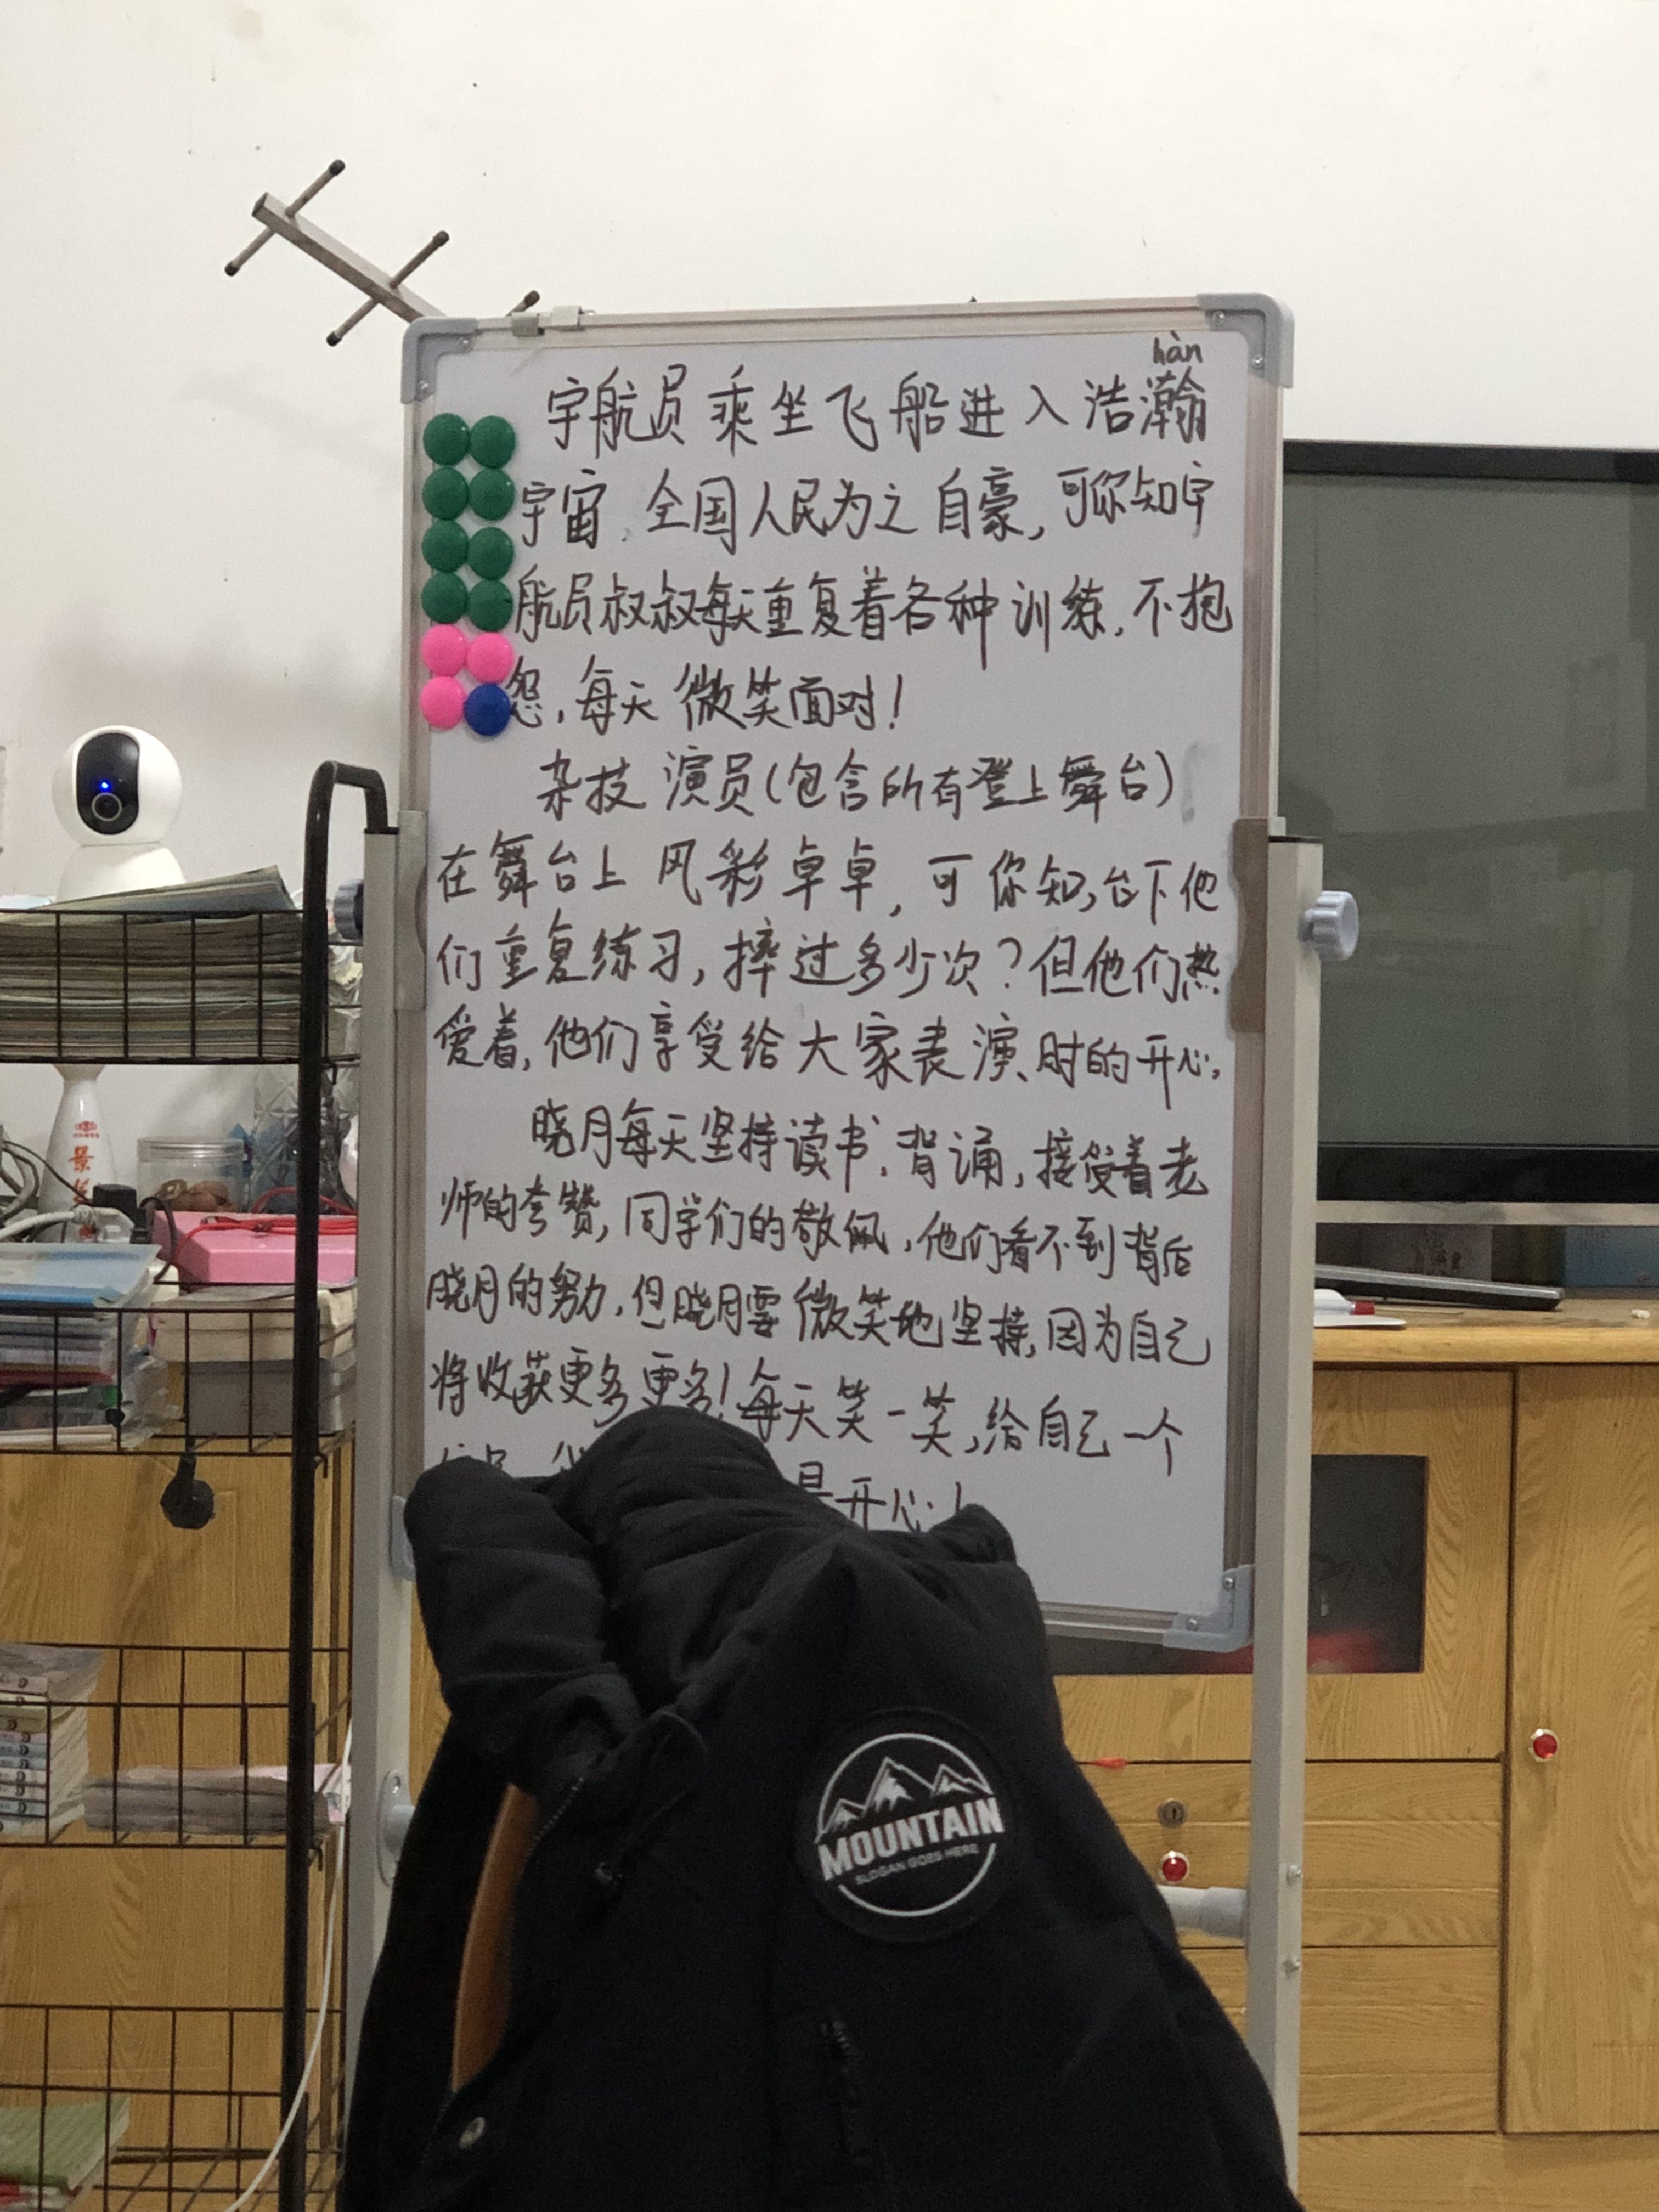 hàn
宇航员乘坐飞船进入浩瀚
宇宙,全国人民为之自豪,可你知宇
航员叔叔每天重复着各种训练,不抱
怨,每天微笑面对!
杂技演员(包含所有登上舞台)
在舞台上风彩卓卓,可你知,台下他
们重复练习,摔过多少次?但他们热
爱着,他们享受给大家表演时的开心,
晓月每天坚持读书,背诵,接受着老
师的夸赞,同学们的敬佩,他们看不到背后
晓月的努力,但晓月要微笑地坚持,因为自己
将收获更多更多!每天笑一笑,给自己一个
是开心!
MOUNTAIN
SLOGAN GOES HERE
景